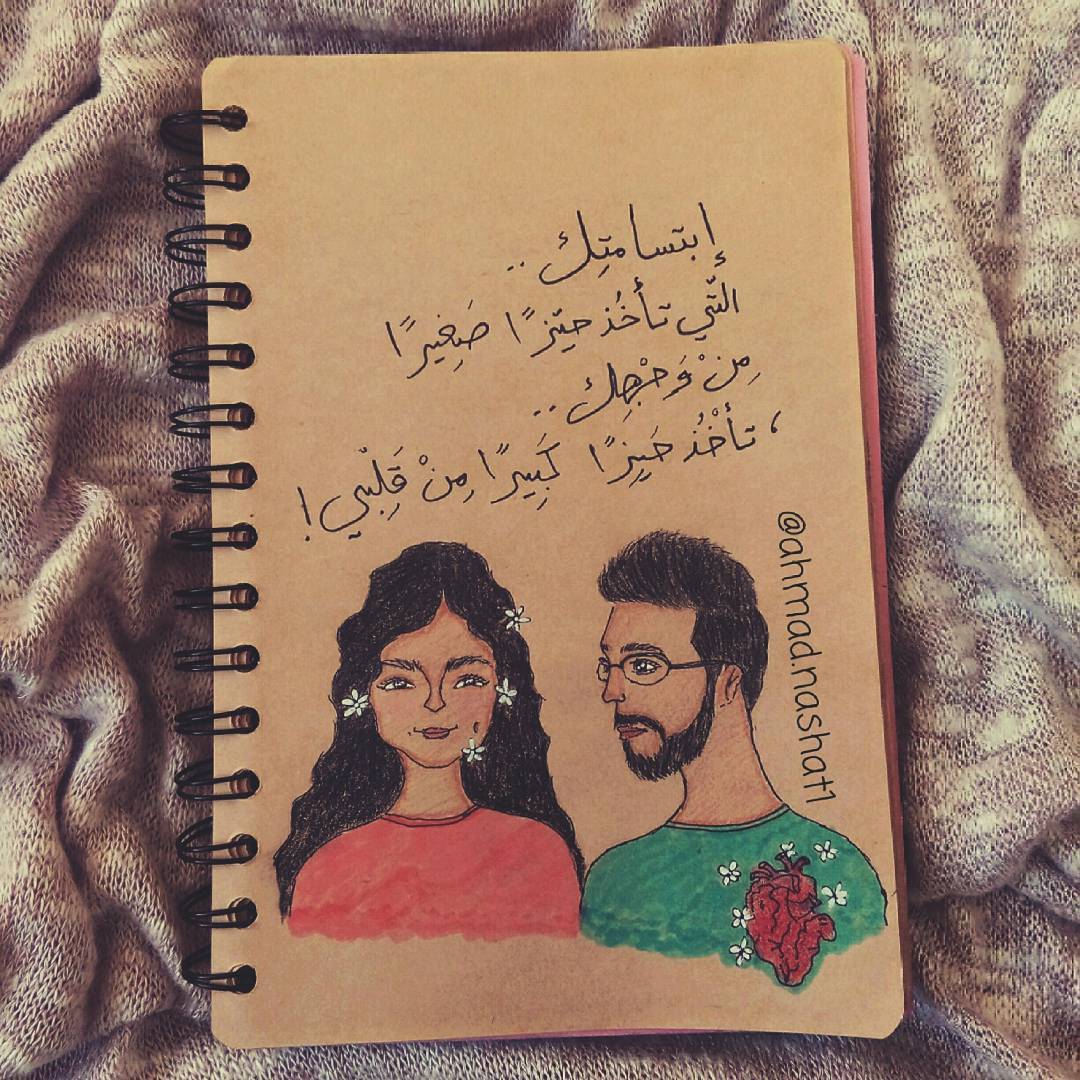 إبتسامتِك ..
التّي تأخُذ حيّزًا صَغِيرًا
مِنْ وَجْهِك ..
، تأخْذُ حَيِزًا كَبِيرًا مِنْ قَلِبْي !
@ahmad.nashat1